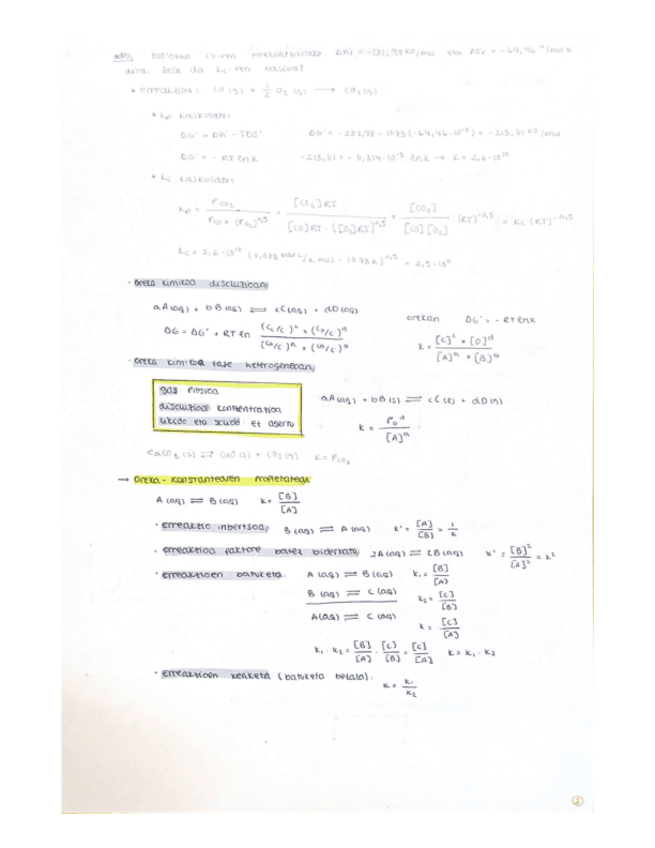 adb. CO-ren ΔHr = -282,98 KJ/mol eta ΔSr = -64,46 J/mol K
dira. Zein da Kc-ren balioa?
• erreakzioa: CO (g) + 1/2 O2 (g) ⟶ CO2 (g)
• Kp kalkulatu:
ΔG° = ΔH° - TΔS°
ΔG° = - RT ln K
• Kc kalkulatu:
Kp = P CO2 / P CO × (P O2)^0,5 = [CO2] RT / [CO] RT · ([O2] RT)^0,5 = [CO2] / [CO] [O2] (RT)^-0,5 = Kc (RT)^-0,5
• Oreka kimikoa disoluzioan,
aA (aq) + bB (aq) ⇌ cC (aq) + dD (aq) orekan ΔG° = - RT ln K
ΔG = ΔG° + RT ln (Cc/c°)^c × (CD/c°)^d / (CA/c°)^a × (CB/c°)^b K = [C]^c × [D]^d / [A]^a × [B]^b
• Oreka kimikoa fase heterogeneoan,
gas: presioa
disoluzioa: kontzentrazioa
likido eta solido: ez agertu
aA (aq) + bB (s) ⇌ cC (l) + dD (g)
K = P D^d / [A]^a
CaCO3 (s) ⇌ CaO (s) + CO2 (g) K = P CO2
→ Oreka-konstantearen propietateak
A (aq) ⇌ B (aq) K = [B] / [A]
• erreakzio inbertsoa, B (aq) ⇌ A (aq) K' = [A] / [B] = 1 / K
• erreakzioa faktore batez biderkatu, 2A (aq) ⇌ 2B (aq) K' = [B]^2 / [A]^2 = K^2
• erreakzioen batuketa: A (aq) ⇌ B (aq) K1 = [B] / [A]
B (aq) ⇌ C (aq) K2 = [C] / [B]
A (aq) ⇌ C (aq) K = [C] / [A]
K1 · K2 = [B] / [A] · [C] / [B] = [C] / [A] K = K1 · K2
• erreakzioen kenketa (batuketa bezala): K = K1 / K2
2